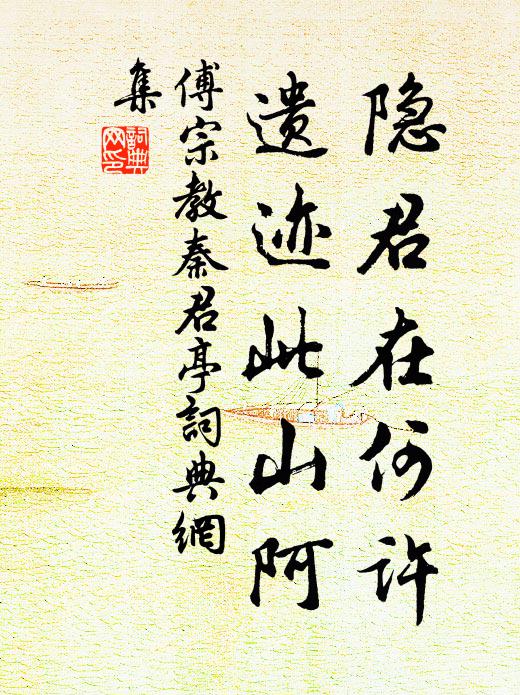 隐君在何许
遗迹此山阿
傅宗教秦君亭詞典網
集
詞典
网印